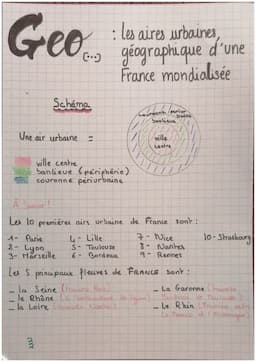 Geo (...) : les aires urbaines,
géographique d'une
France mondialisée
Schéma
couronne périurbaine
banlieue
ville
centre
Une air urbaine =
ville centre
banlieue (périphérie)
couronne périurbaine
À savoir !
Les 10 premières airs urbaine de France sont :
1- Paris 4- Lille 7- Nice 10- Strasbourg
2- Lyon 5- Toulouse 8- Nantes
3- Marseille 6- Bordeaux 9- Rennes
Les 5 principaux fleuves de FRANCE sont :
_ la Seine _ La Garonne
_ le Rhône _ Le Rhin
_ la Loire